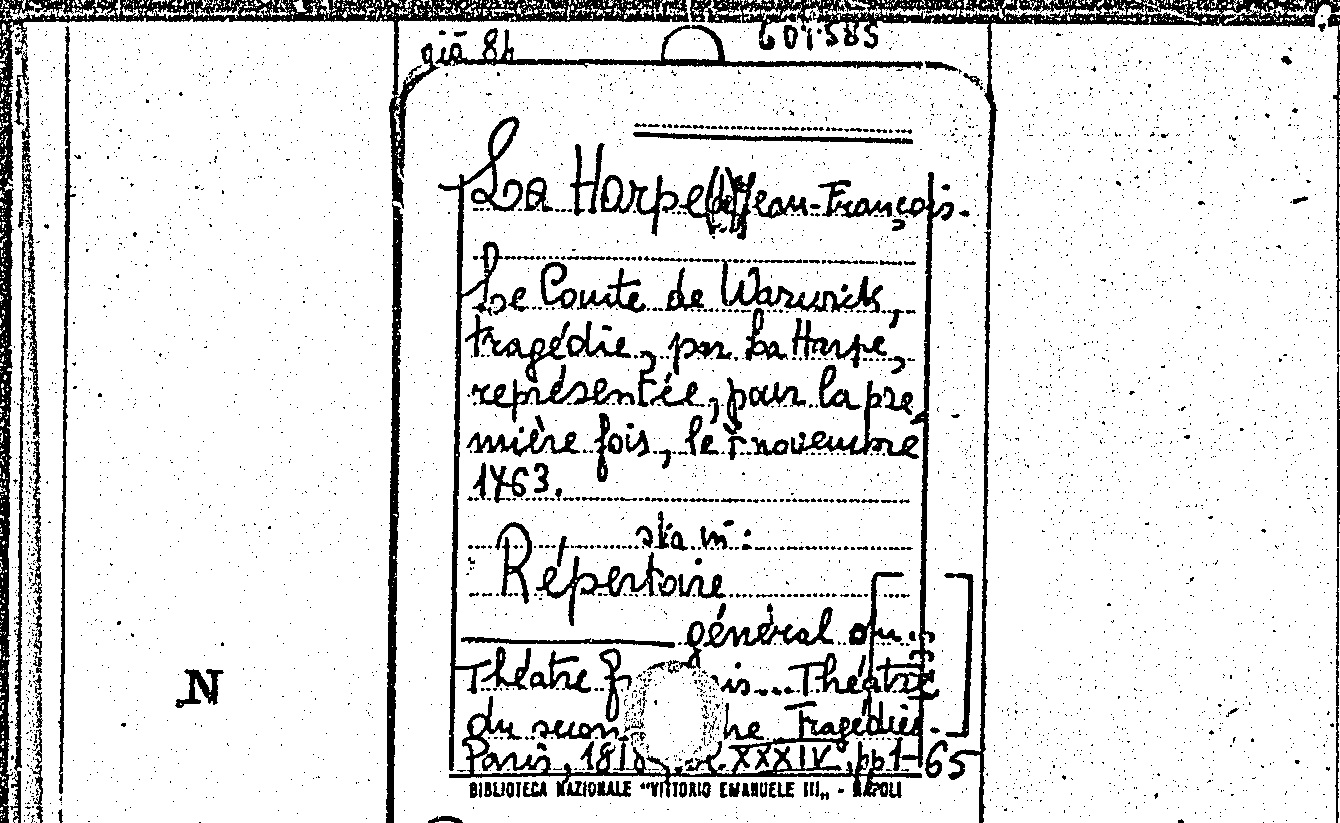 già 8h 601585
La Harpe (de) Jean-François.
Le Comte de Warwick,
tragédie, par La Harpe,
représentée, pour la pre
mière fois, le 7 novembre
1763.
sta in:
Répertoire
général du
Théatre f is... Théatre
du secon he Tragédies.
Paris, 1818 XXXIV, pp 1-65
BIBLIOTECA NAZIONALE "VITTORIO EMANUELE III„ - NAPOLI
N